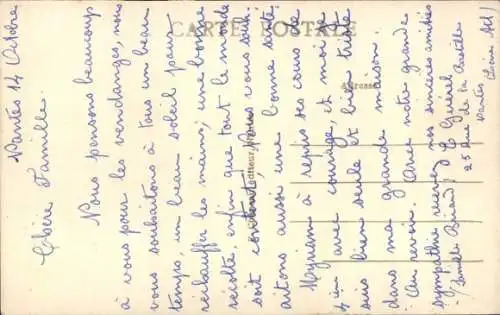 CARTE POSTALE
Adresse
Nantes 14 Octobre
Chère Famille.
Nous pensons beaucoup
à vous pour les vendanges, nous
vous souhaitons à tous un beau
temps, un beau soleil pour
réchauffer les mains, une bonne
récolte, enfin que tout le monde
soit content. Nous vous souh-
aitons aussi une bonne santé.
Myriam à repris ses cours le
avec courage, et moi je
suis bien seule et bien triste
dans ma grande maison.
Au revoir. Avec notre grande
sympathie recevez nos sincères amitiés
Famille
25 Rue de la
Nantes